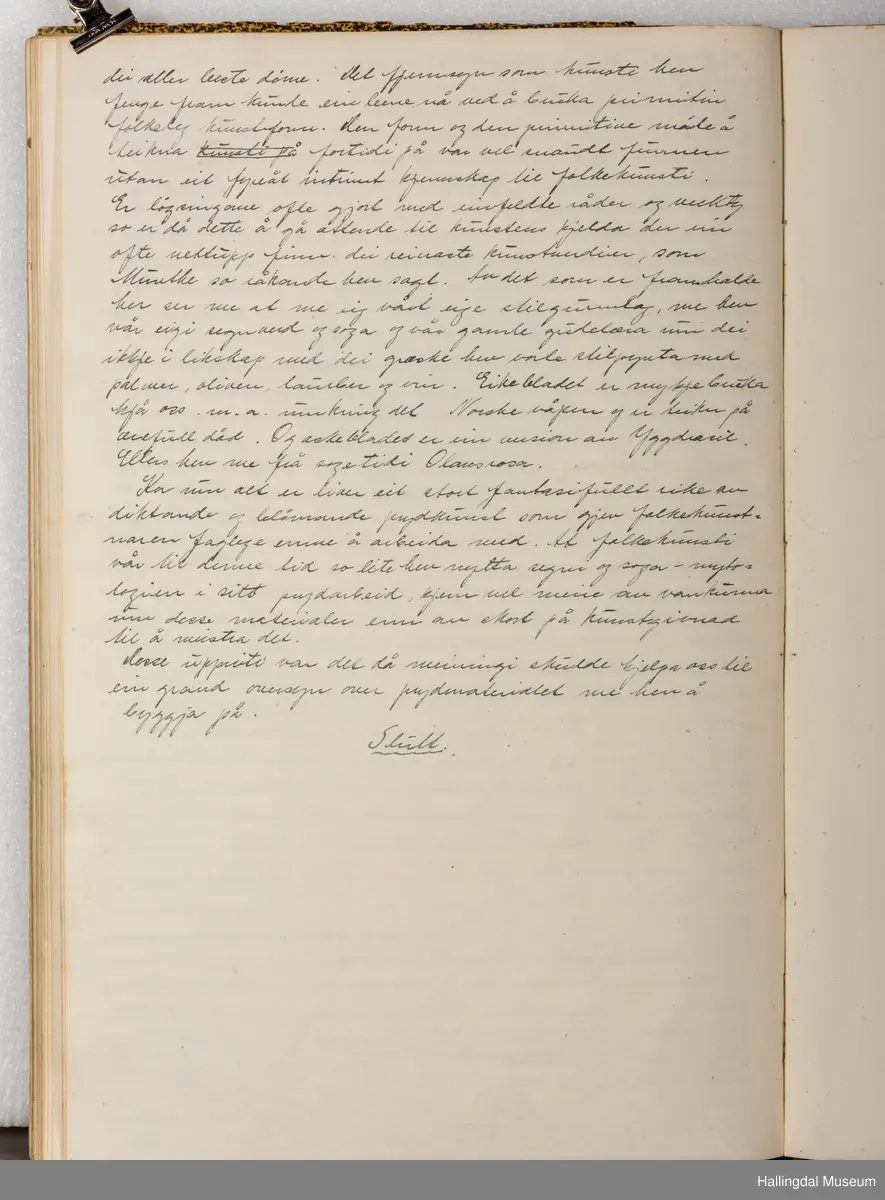 dei aller beste døme. Det fjernsyn som kunsti hev
fenge fram kunde ein berre nå ved å bruka primitiv
folkeleg kunstform. Den form og den primitive måte å
teikna kunsti på fortidi på var vel snaudt funnen
utan eit fyreåt intimt kjennskap til folkekunsti.
Er løysingane ofte gjort med einfeldte råder og verktøy
so er då dette å gå attende til kunstens kjelda der ein
ofte nettupp finn dei reinaste kunstverdier, som
Munthe so råkande hev sagt. Av det som er framhalde
her ser me at me eig vårt eige stilgrunnlag, me hev
vår eigi segnverd og soga og vår gamle gudelæra um dei
ikkje i likskap med dei græske hev vorte stilprypta med
palmer, oliven, laurber og vin. Eikebladet er mykje bruka
hjå oss m.a. umkring det Norske våpen og er teikn på
ærefull dåd. Og askeblades er ein version av Yggdrasil.
Ellers hev me frå sogetidi Olavsrosa.
Kor um alt er liver eit stort fantasifullt rike av
diktande og blømande prydkunst som gjev folkekunst-
naren faglege emne å arbeida med. At folkekunsti
vår til denne tid so lite hev nytta segni og soga - myto-
logien i sitt prydarbeid, kjem vel meire av vankunna
um desse materialer enn av skort på kunstgivnad
til å meistra det.
Desse upprit var det då meiningi skulde hjelpa oss til
ein grand oversyn over prydmaterialet me hev å
byggja på.
Slutt.
Hallingdal Museum